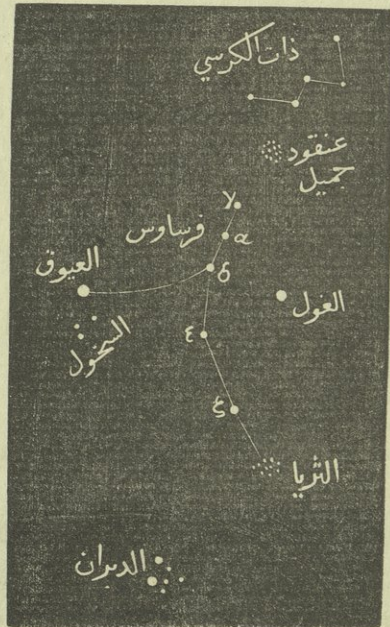 ذات الكرسي
عنقود
جميل
γ
فرساوس
α
العيوق
δ
الغول
السخول
ε
ξ
الثريا
الدبران